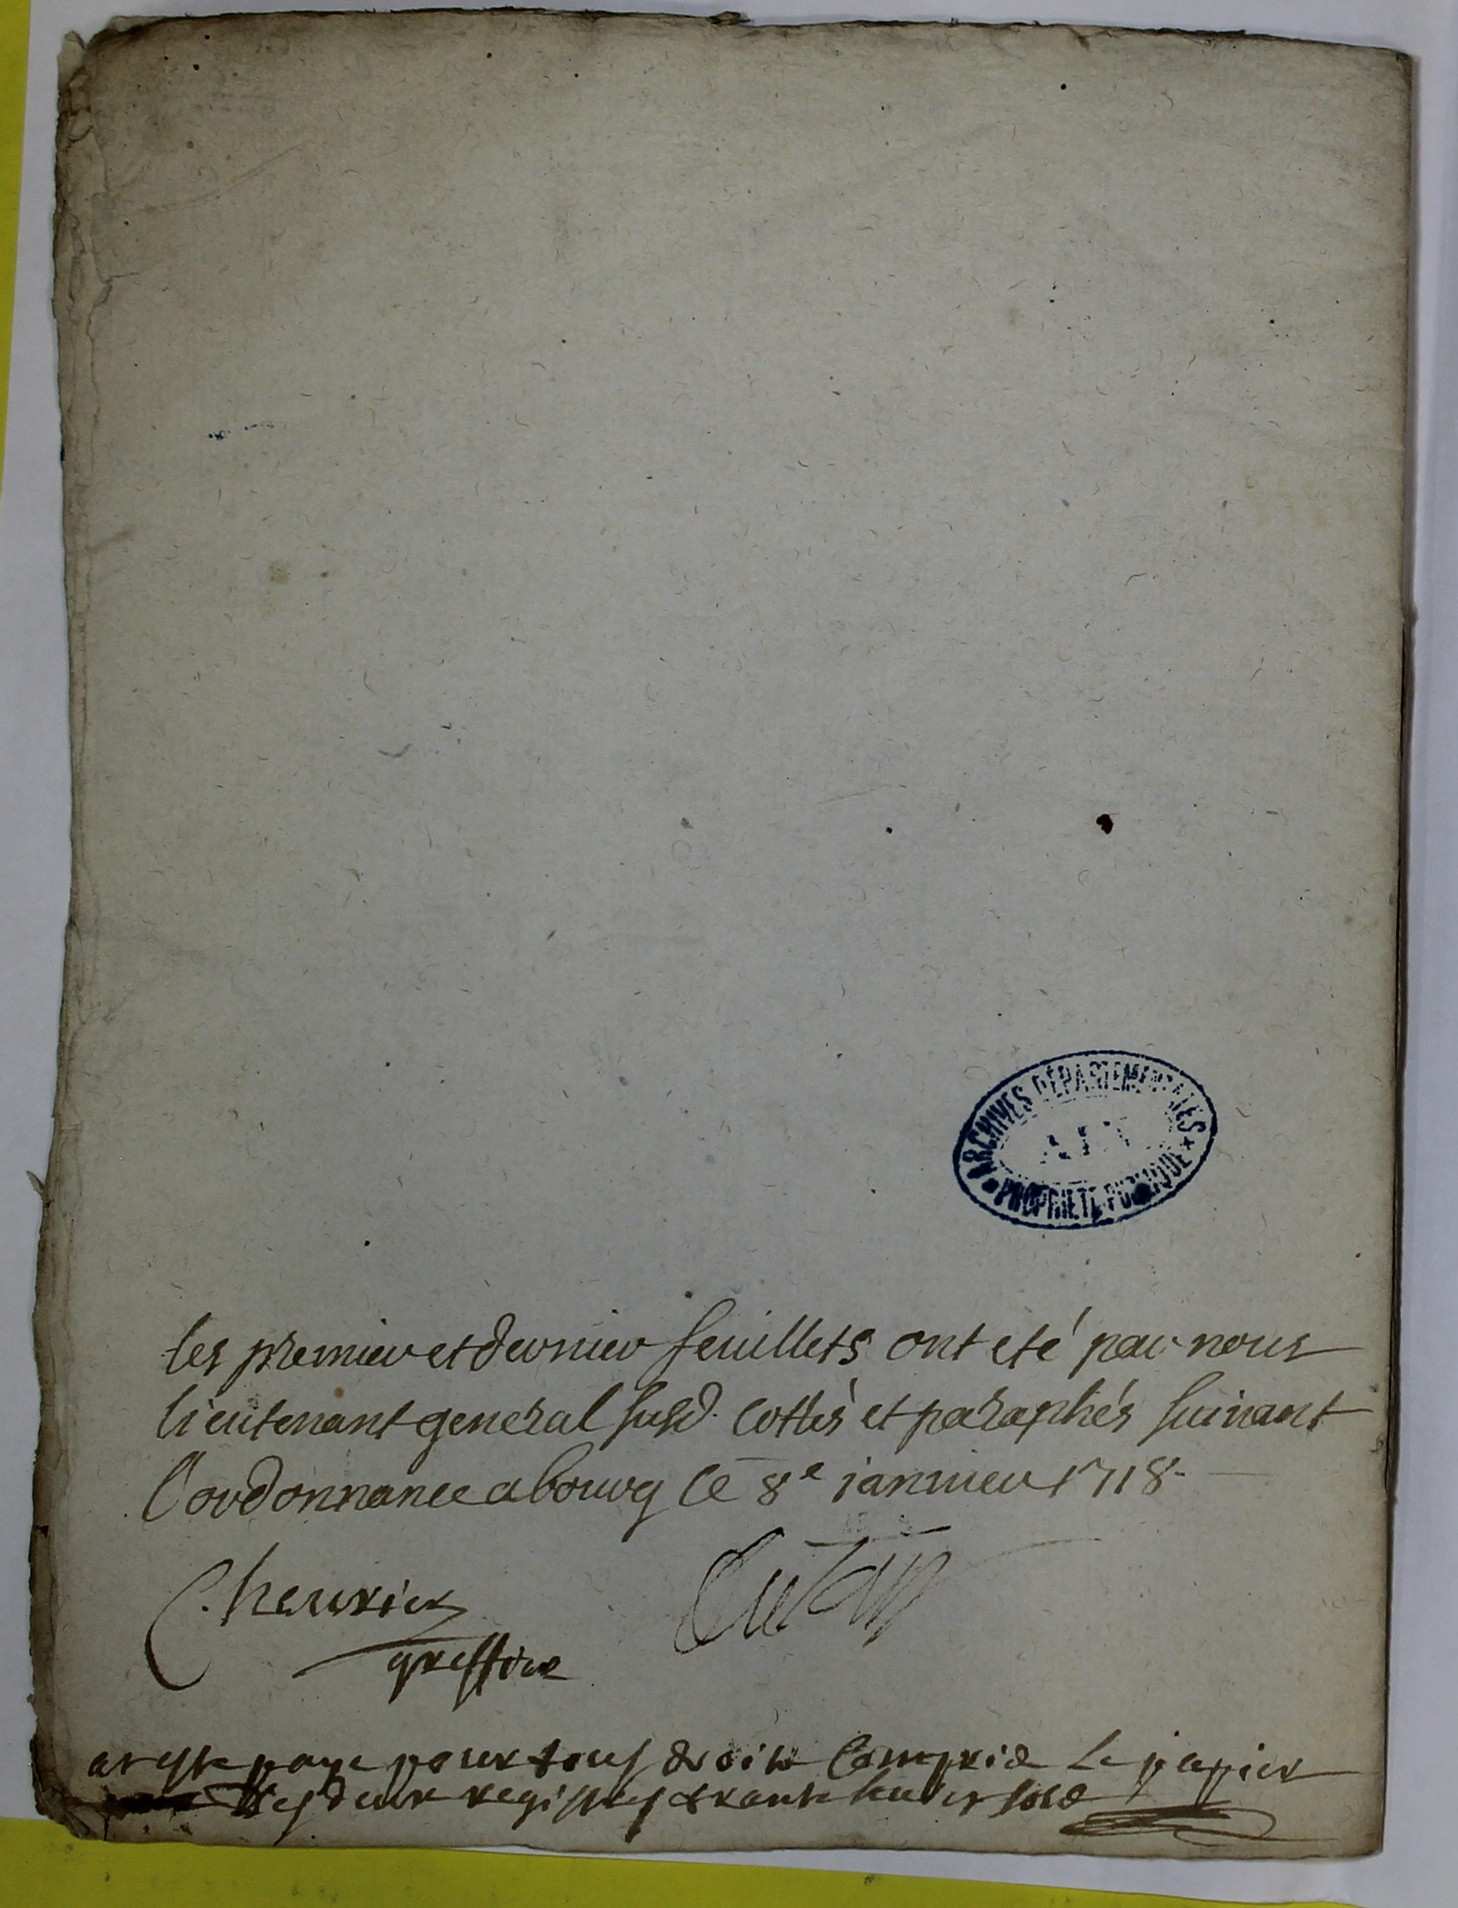 ARCHIVES DÉPARTEMENTALES
AIN
PROPRIÉTÉ PUBLIQUE
les premier et dernier feuillets ont eté par nous
lieutenant general susd. cottés et paraphés suivant
l'ordonnance a bourg ce 8e janvier 1718
Cheurier
greffier
a esté paye pour tous droits compris le papier
des deux registres trante huit sols